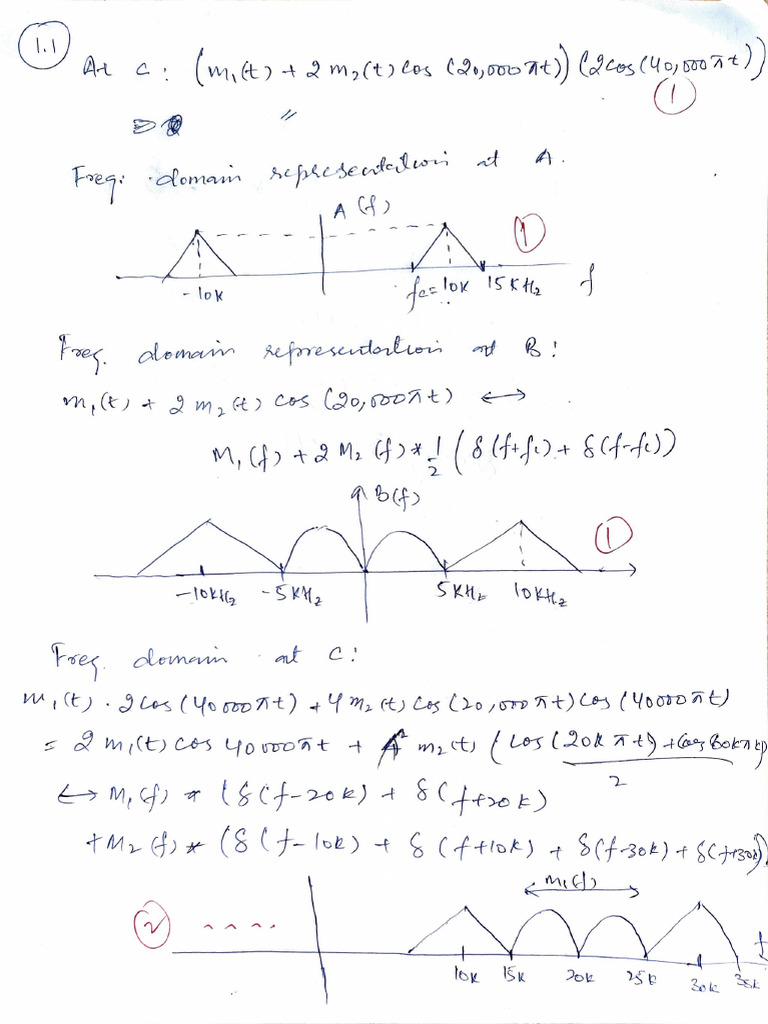 1.1
At C: (m₁(t) + 2 m₂(t) cos (20,000πt)) (2cos(40,000πt))
①
⇒ "
Freq. domain representation at A.
A(f)
①
-10K fc=10K 15KHz f
Freq. domain representation at B:
m₁(t) + 2 m₂(t) cos (20,000πt) ↔
M₁(f) + 2 M₂(f) * 1/2 (δ(f+fc) + δ(f-fc))
B(f)
①
-10KHz -5KHz 5KHz 10KHz
Freq. domain at C:
m₁(t) · 2cos(40000πt) + 4 m₂(t) cos(20,000πt) cos(40000πt)
= 2 m₁(t) cos 40000πt + 2 m₂(t) (cos(20kπt) + cos 60kπt)
2
↔ M₁(f) * (δ(f-20k) + δ(f+20k)
+ M₂(f) * (δ(f-10k) + δ(f+10k) + δ(f-30k) + δ(f+30k))
M₁(f)
② f
10K 15K 20K 25K 30K 35K